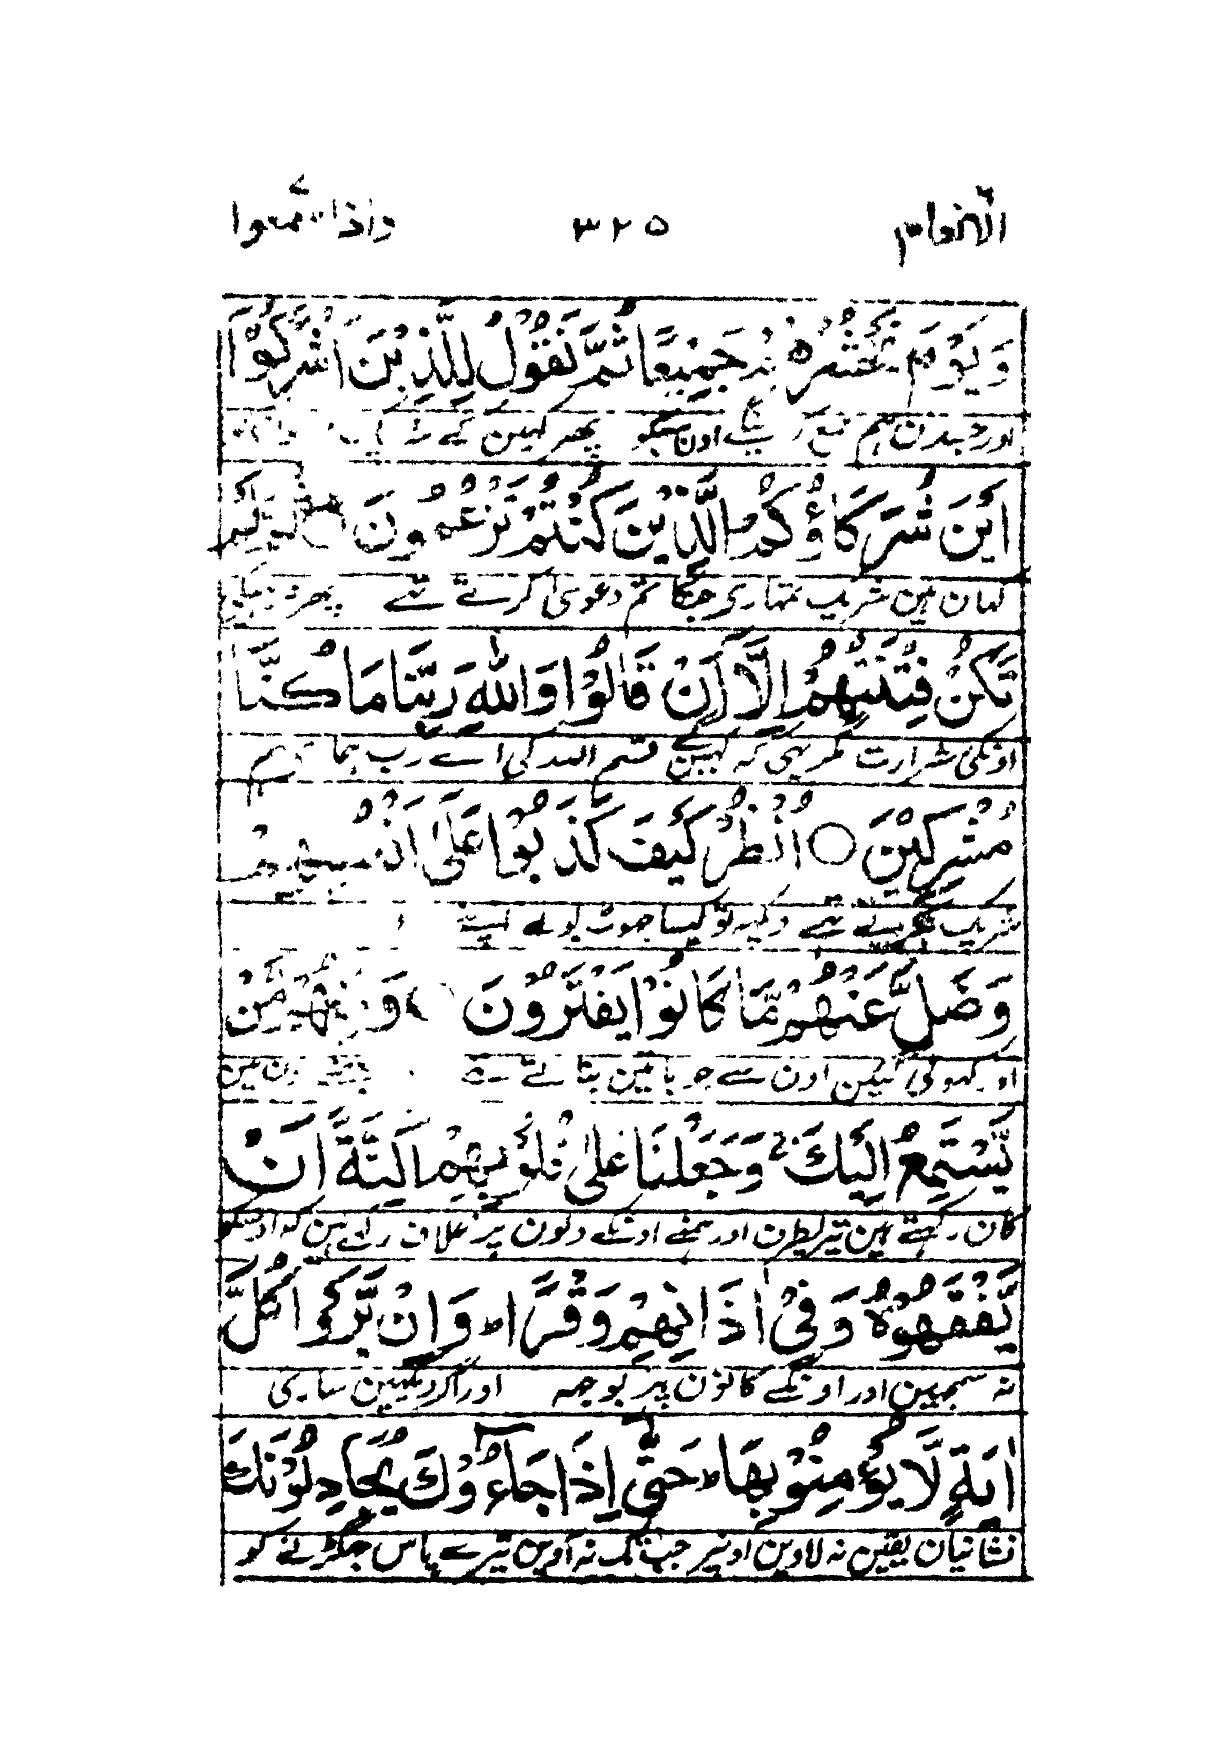 الانعام ٦ ٣٢٥ واذا سمعوا ٧
وَيَوْمَ نَحْشُرُهُمْ جَمِيْعًا ثُمَّ نَقُوْلُ لِلَّذِيْنَ اَشْرَكُوْۤا
اور جسدن ہم جمع اون سبکو پھر کہین گے
اَيْنَ شُرَكَآؤُكُمُ الَّذِيْنَ كُنْتُمْ تَزْعُمُوْنَ ○ ثُمَّ لَمْ
کہان ہین شریک تمہاری جنکا تم دعوی کرتے تھے پھر نہ رہیگی
تَكُنْ فِتْنَتُهُمْ اِلَّاۤ اَنْ قَالُوْا وَاللّٰهِ رَبِّنَا مَا كُنَّا
اونکی شرارت مگر یہی کہ کہین گے قسم اللہ کی اے رب ہم
مُشْرِكِيْنَ ○ اُنْظُرْ كَيْفَ كَذَبُوْا عَلٰۤى اَنْفُسِهِمْ
شریک نکرتے تھے دیکھ تو کیسا جھوٹ بولے اپنے
وَضَلَّ عَنْهُمْ مَّا كَانُوْا يَفْتَرُوْنَ ○ وَمِنْهُمْ مَّنْ
اور کہوئی گئین اون سے جو باتین بناتے تھے بعضے اون مین
يَّسْتَمِعُ اِلَيْكَ ۚ وَجَعَلْنَا عَلٰى قُلُوْبِهِمْ اَكِنَّةً اَنْ
کان رکہتے ہین تیریطرف اور ہمنے اونکے دلون پر غلاف رکہے ہین کہ اوسکو
يَّفْقَهُوْهُ وَفِيْۤ اٰذَانِهِمْ وَقْرًا ؕ وَاِنْ يَّرَوْا كُلَّ
نہ سمجہین اور اونکے کانون پر بوجھ اور اگر دیکہین ساری
اٰيَةٍ لَّا يُؤْمِنُوْا بِهَا ؕ حَتّٰۤى اِذَا جَآءُوْكَ يُجَادِلُوْنَكَ
نشانیان یقین نہ لاوین اونپر جب تک نہ آوین تیرے پاس جہگڑنے کو